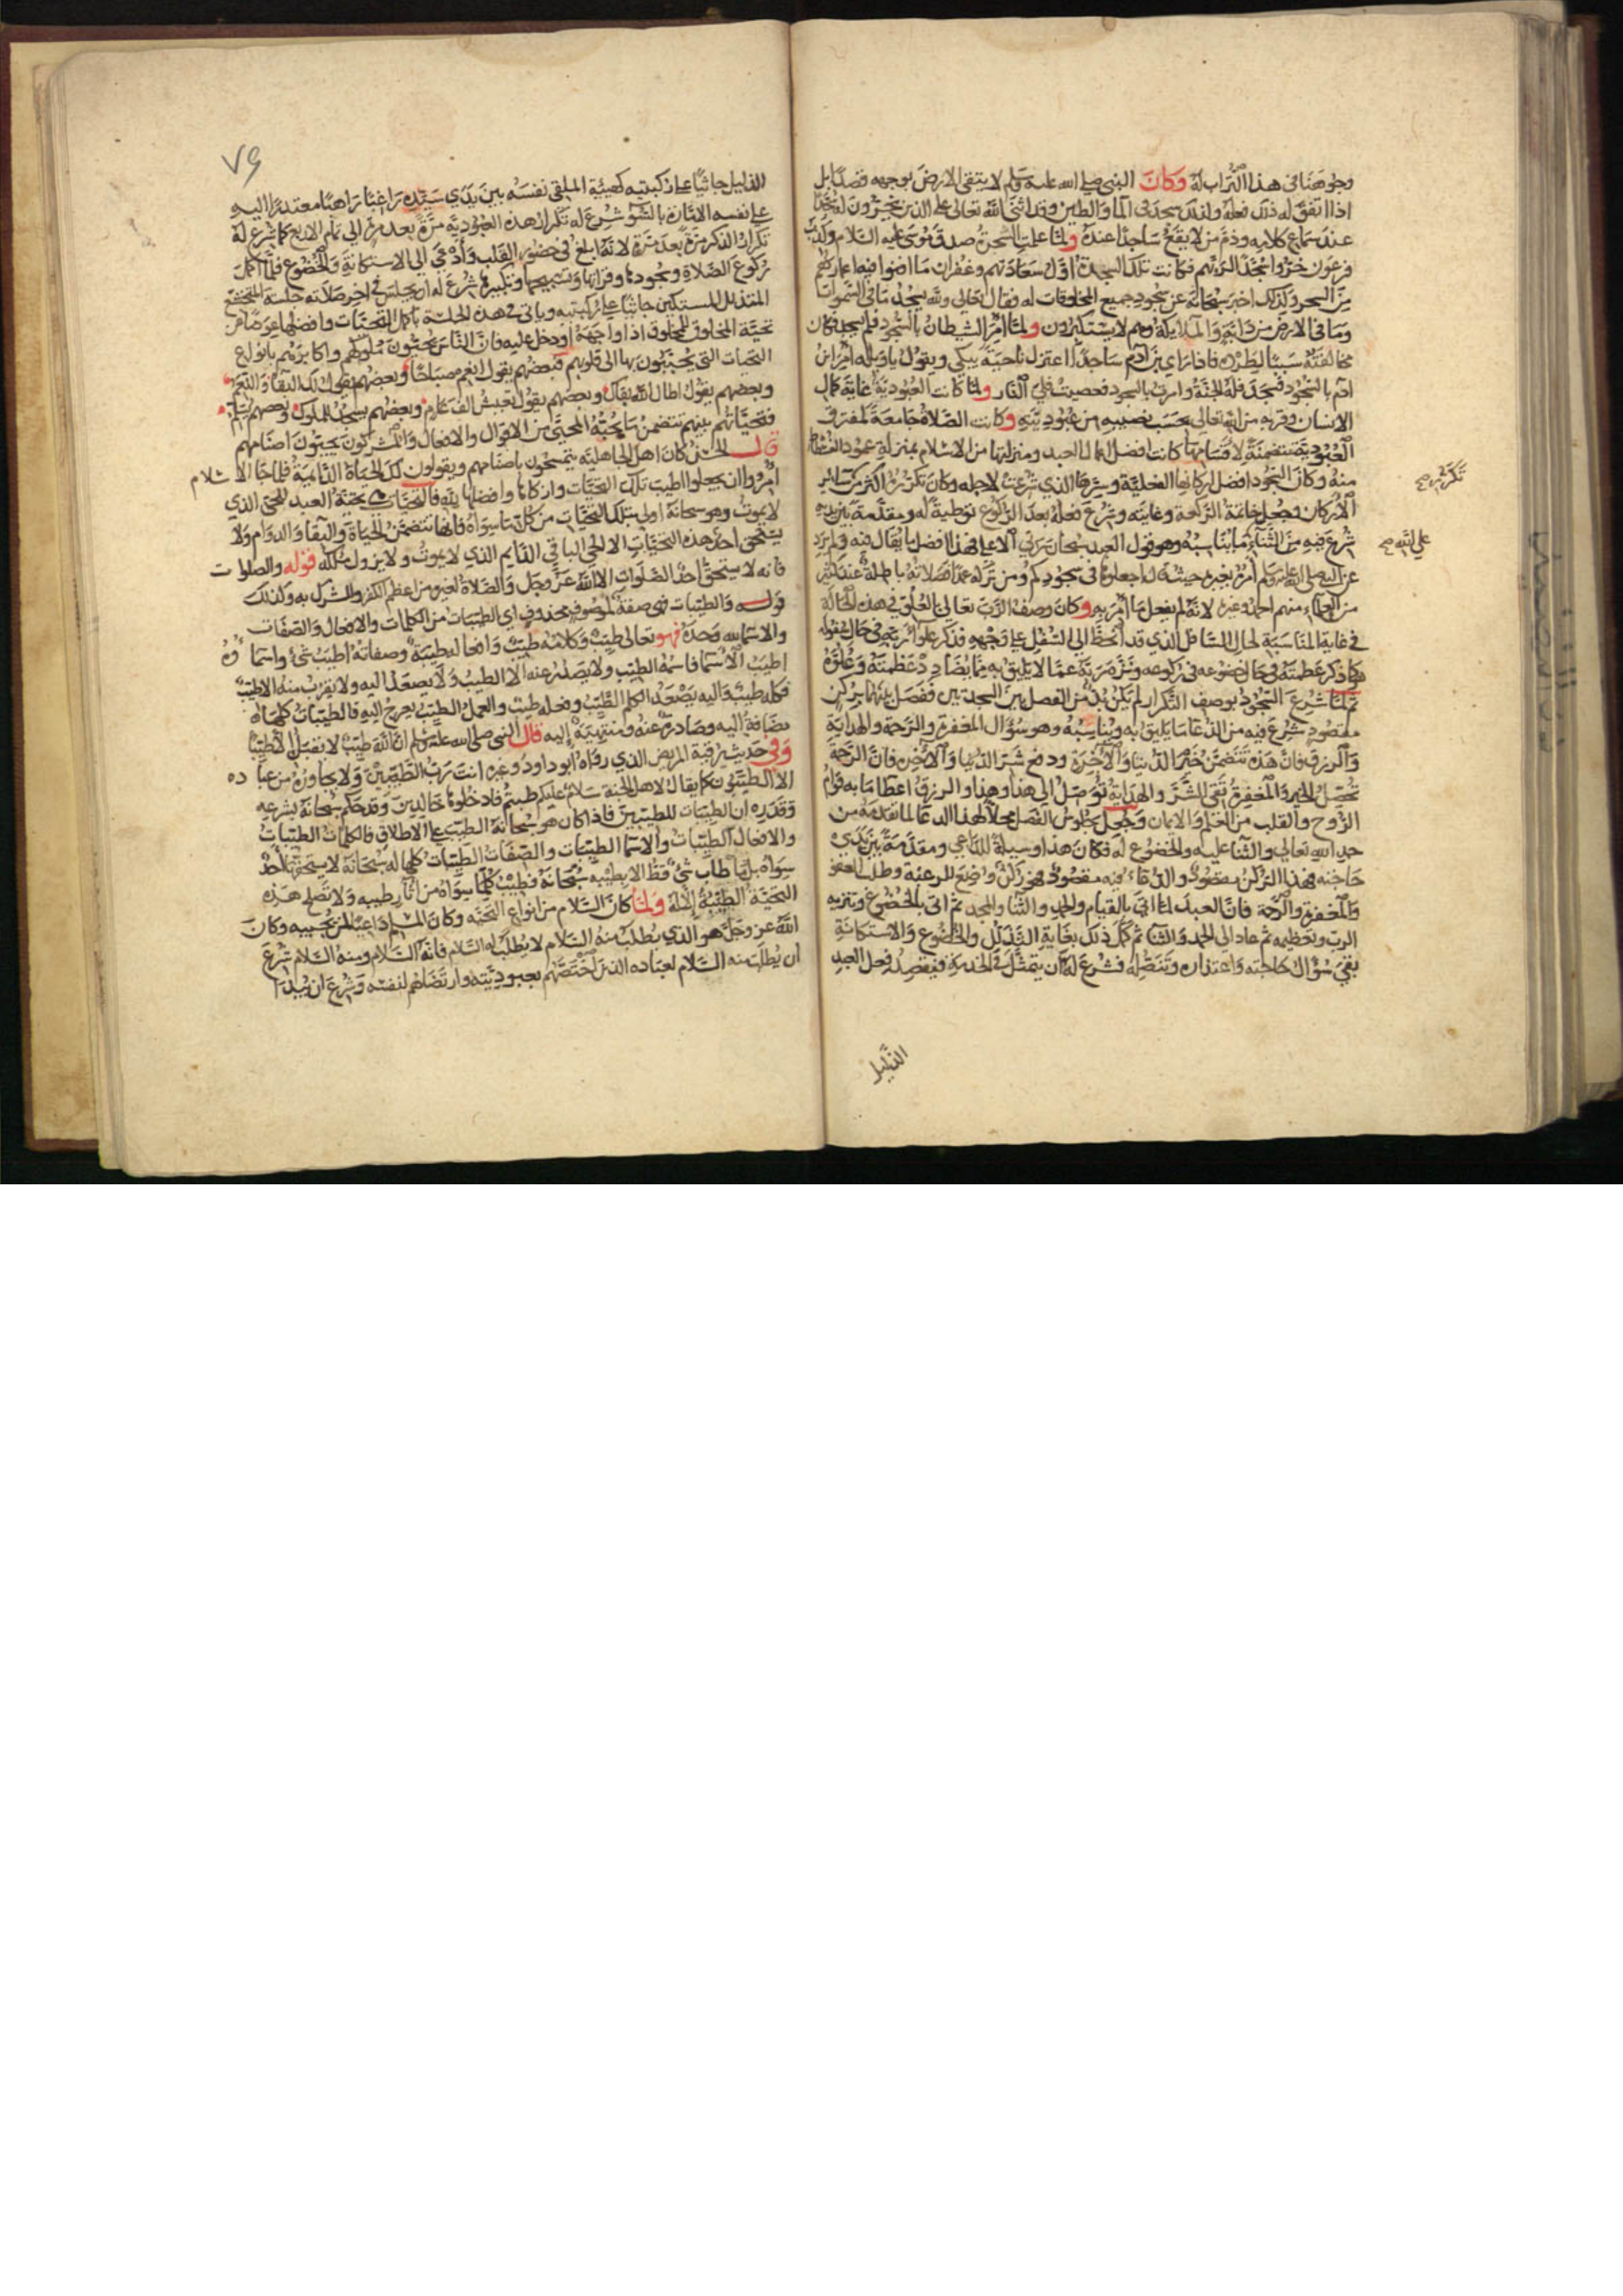 وجوههنا في هذا التراب له وكان النبي صلى الله عليه وسلم لا يتقى الارض بوجهه قصدا بل
اذا اتفق له ذلك فعله ولذلك سجد في الماء والطين وقد اثنى الله تعالى على الذين يخرون له سجدا
عند سماع كلامه وذم من لا يقع ساجدا عنده ولما علمت السحرة صدق موسى عليه السلام وكذب
فرعون خروا سجدا لربهم فكانت تلك السجدة اول سعادتهم وغفران ما افنوا فيه اعمارهم
من السحر ولذلك اخبر سبحانه عن سجود جميع المخلوقات له فقال تعالى ولله يسجد ما في السموات
وما في الارض من دابة والملايكة وهم لا يستكبرون ولما امر الشيطان بالسجود فلم يسجد فكان
مخالفته سببا لطرده فاذا راي بن آدم ساجدا اعتزل ناحية يبكي ويقول يا ويله امر ابن
ادم بالسجود فسجد فله الجنة وامرت بالسجود فعصيت فلي النار ولما كانت العبودية غاية كمال
الانسان وقربه من الله تعالى بحسب نصيبه من عبوديته وكانت الصلاة جامعة لمتفرق
العبودية متضمنة لاقسامها كانت افضل اعمال العبد ومنزلتها من الاسلام بمنزلة عمود الفسطاط
منه وكان السجود افضل اركانها الفعلية وسرها الذي شرعت لاجله وكان تكرره اكثر من سائر
تكرره صح
الاركان وجعل خاتمة الركعة وغايته وشرع فعله بعد الركوع توطية له ومقدمة بين يديه
شرع فيه من الثناء ما يناسبه وهو قول العبد سبحان ربي الاعلى فهذا افضل ما يقال فيه ولم يرد
على الله صح
عن النبي صلى الله عليه وسلم امره بغيره حيث قال اجعلوها في سجودكم ومن تركه عمدا فصلاته باطلة عند كثير
من العلماء منهم احمد وغيره لانه لم يفعل ما امر به وكان وصف الرب تعالى بالعلو في هذه الحالة
في غاية المناسبة لحال الساجد الذي قد انحط الى السفل على وجهه فذكر علو ربه في حال سفوله
كما ذكر عظمته في حال خضوعه في ركوعه ونزه ربه عما لا يليق به مما يضاد عظمته وعلوه
ثم لما شرع السجود بوصف التكرار لم يكن بد من الفصل بين السجدتين ففصل بينهما بركن
مقصود شرع فيه من الدعا ما يليق به ويناسبه وهو سؤال المغفرة والرحمة والهداية
والرزق فان هذه تتضمن خير الدنيا والاخرة ودفع شر الدنيا والاخرة فان الرحمة
تحصل الخير والمغفرة تقي الشر والهداية توصل الى هذا وهذا والرزق اعطا ما به قوام
الروح والقلب من العلم والايمان وجعل جلوس الفصل محلا لهذا الدعا لما تقدمه من
حمد الله تعالى والثنا عليه والخضوع له فكان هذا وسيلة للداعي ومقدمة بين يدي
حاجته فهذا الركن مقصود والدعاء فيه مقصود فهو ركن وضع للرغبة وطلب العفو
والمغفرة والرحمة فان العبد لما اتى بالقيام والحمد والثنا والمجد ثم اتى بالخضوع وتنزيه
الرب وتعظيمه ثم عاد الى الحمد والثنا ثم كمل ذلك بغاية التذلل والخضوع والاستكانة
بقي سؤال حاجته واعتذاره وتنصله فشرع له ان يتمثل في الخدمة فيقعد فعل العبد
الذليل
٧٩
الذليل جاثيا على ركبتيه كهيئة الملقي نفسه بين يدي سيده راغبا راهبا معتذرا اليه
على نفسه الامارة بالسوء شرع له تكرار هذه العبودية مرة بعد مرة الى تمام الاربع كما شرع له
تكرار الذكر مرة بعد مرة لانه ابلغ في حضور القلب وادعى الى الاستكانة والخضوع فلما اكمل
ركوع الصلاة وسجودها وقراتها وتسبيحها وتكبيرها شرع له ان يجلس في اخر صلاته جلسة المتخشع
المتذلل المستكين جاثيا على ركبتيه وياتي في هذه الجلسة باكمل التحيات وافضلها عوضا عن
تحية المخلوق للمخلوق اذا واجهه او دخل عليه فان الناس يحيون ملوكهم واكابرهم بانواع
التحيات التي يحببون بها الى قلوبهم فبعضهم يقول انعم صباحا وبعضهم يقول لك البقا والنعم
وبعضهم يقول اطال الله بقاك وبعضهم يقول تعيش الف عام وبعضهم يسجد للملوك وبعضهم يسلم
فتحياتهم بينهم تتضمن ما يحبه المحيى من الاقوال والافعال والمشركون يحيون اصنامهم
قال الحسن كان اهل الجاهلية يتمسحون باصنامهم ويقولون لك الحياة الدائمة فلما جا الاسلام
امروا ان يجعلوا اطيب تلك التحيات وازكاها وافضلها لله فالتحيات هي تحية العبد للحي الذي
لا يموت وهو سبحانه اولى بتلك التحيات من كل ما سواه فانها تتضمن الحياة والبقا والدوام ولا
يستحق احد هذه التحيات الا الحي الباقي القايم الذي لا يموت ولا يزول ملكه قوله والصلوات
فانه لا يستحق احد الصلوات الا الله عز وجل والصلاة لغيره من اعظم الكفر والشرك به وكذلك
قوله والطيبات هي صفة لموصوف محذوف اي الطيبات من الكلمات والافعال والصفات
والاسما لله وحده فهو تعالى طيب وكلامه طيب وافعاله طيبة وصفاته اطيب شئ واسماؤه
اطيب الاسما فاسمه الطيب ولا يصدر عنه الا الطيب ولا يصعد اليه ولا يقرب منه الا طيب
فكله طيب واليه يصعد الكلم الطيب وفعله طيب والعمل الطيب يعرج اليه فالطيبات كلها له
مضافة اليه وصادرة عنه ومنتهية اليه قال النبي صلى الله عليه وسلم ان الله طيب لا يقبل الا طيبا
وفي حديث رقية المريض الذي رواه ابو داود وغيره انت رب الطيبين ولا يجاوره من عباده
الا الطيبون كما يقال لاهل الجنة سلام عليكم طبتم فادخلوها خالدين وقد حكم سبحانه بشرعه
وقدره ان الطيبات للطيبين فاذا كان هو سبحانه الطيب على الاطلاق فالكلمات الطيبات
والافعال الطيبات والاسما الطيبات والصفات الطيبات كلها له سبحانه لا يستحقها احد
سواه بل ما طاب شئ قط الا بطيبه سبحانه فطيب كل ما سواه من آثار طيبه ولا تصلح هذه
التحية الطيبة الا له ولما كان السلام من انواع التحية وكان المسلم داعيا لمن يحييه وكان
الله عز وجل هو الذي يطلب منه السلام لا يطلب له السلام فانه السلام ومنه السلام شرع
ان يطلب منه السلام لعباده الذين اختصهم بعبوديته وارتضاهم لنفسه وشرع ان يبدا